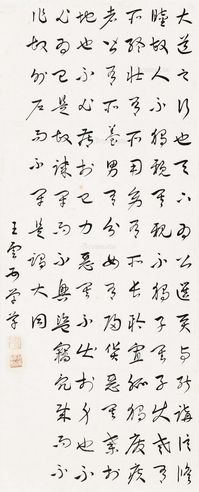 大道之行也天下為公選賢與能講信修
睦故人不獨親其親不獨子其子使老有
所終壯有所用幼有所長矜寡孤獨廢疾
者皆有所養男有分女有歸貨惡其棄於
地也不必藏於己力惡其不出於身也不
必為己是故謀閉而不興盜竊亂賊而不
作故外戶而不閉是謂大同
王雲